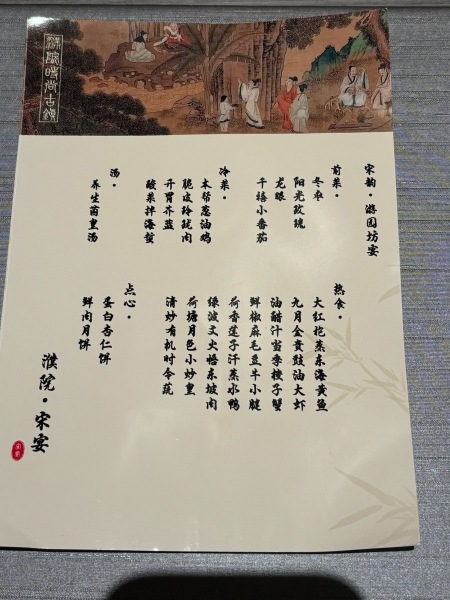 濮院时尚古镇
宋韵·游园坊宴
前菜·
冬枣
阳光玫瑰
龙眼
千禧小番茄
冷菜·
本帮葱油鸡
脆皮玲珑肉
开胃芥蓝
酸菜拌海蜇
汤·
养生菌皇汤
热食·
大红袍蒸东海黄鱼
九月金贵豉油大虾
油醋汁当季梭子蟹
鲜椒麻毛豆牛小腿
荷香莲子汗蒸水鸭
绿波文火悟东坡肉
荷塘月色小炒皇
清炒有机时令蔬
点心·
蛋白杏仁饼
鲜肉月饼
濮院·宋宴